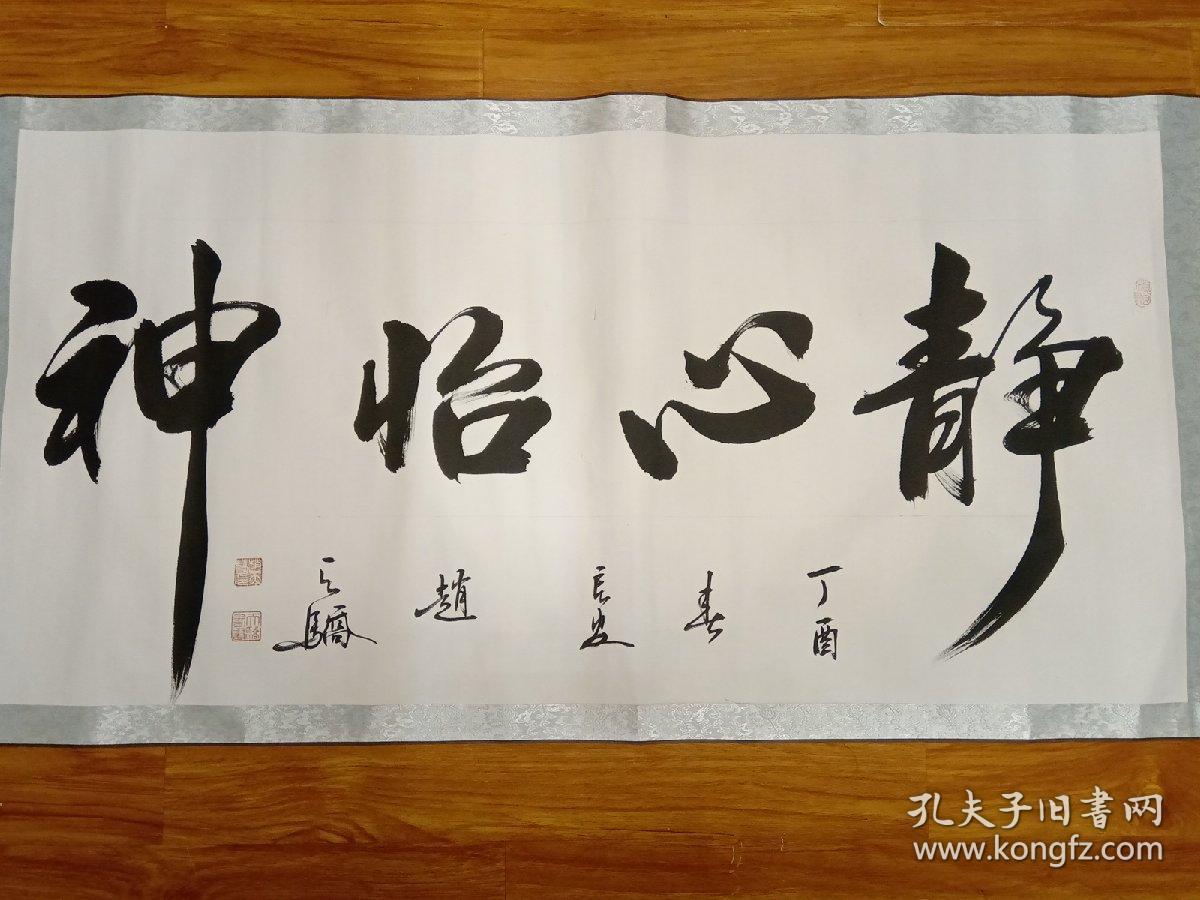 靜心怡神
丁酉
春
長安
趙
驕
孔夫子旧書网
www.kongfz.com